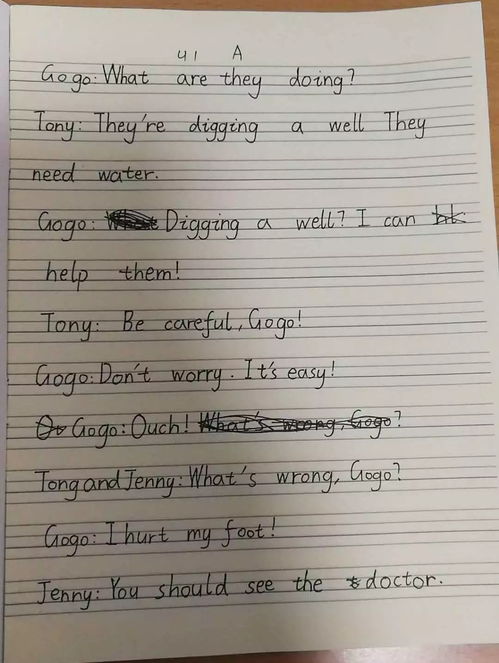 U1 A
Gogo: What are they doing?
Tony: They're digging a well They
need water.
Gogo: Digging a well? I can
help them!
Tony: Be careful, Gogo!
Gogo: Don't worry. It's easy!
Gogo: Ouch! What's wrong, Gogo?
Tong and Jenny: What's wrong, Gogo?
Gogo: I hurt my foot!
Jenny: You should see the doctor.